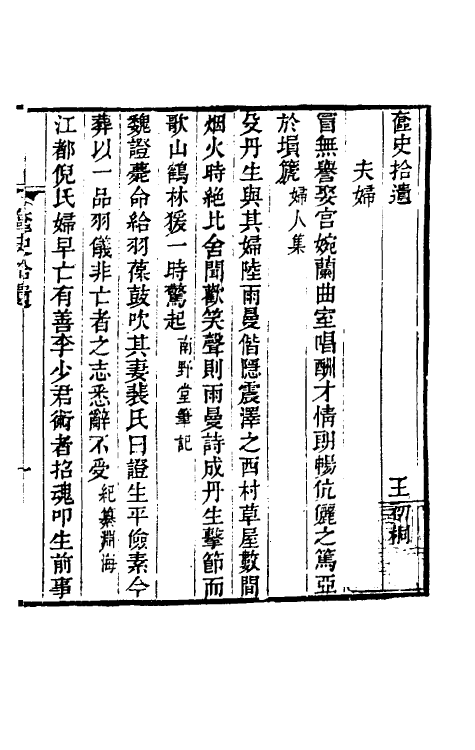 奩史拾遺
王初桐
夫婦
冒無譽娶宫婉蘭曲室唱酬才情朗暢伉儷之篤亞
於塤篪婦人集
殳丹生與其婦陸雨曼偕隱震澤之西村草屋數間
烟火時絶比舍聞歡笑聲則雨曼詩成丹生擊節而
歌山鶴林猨一時驚起南野堂筆記
魏證薨命給羽葆鼓吹其妻裴氏曰證生平儉素今
葬以一品羽儀非亡者之志悉辭不受紀纂淵海
江都倪氏婦早亡有善李少君術者招魂叩生前事
奩史拾遺
一